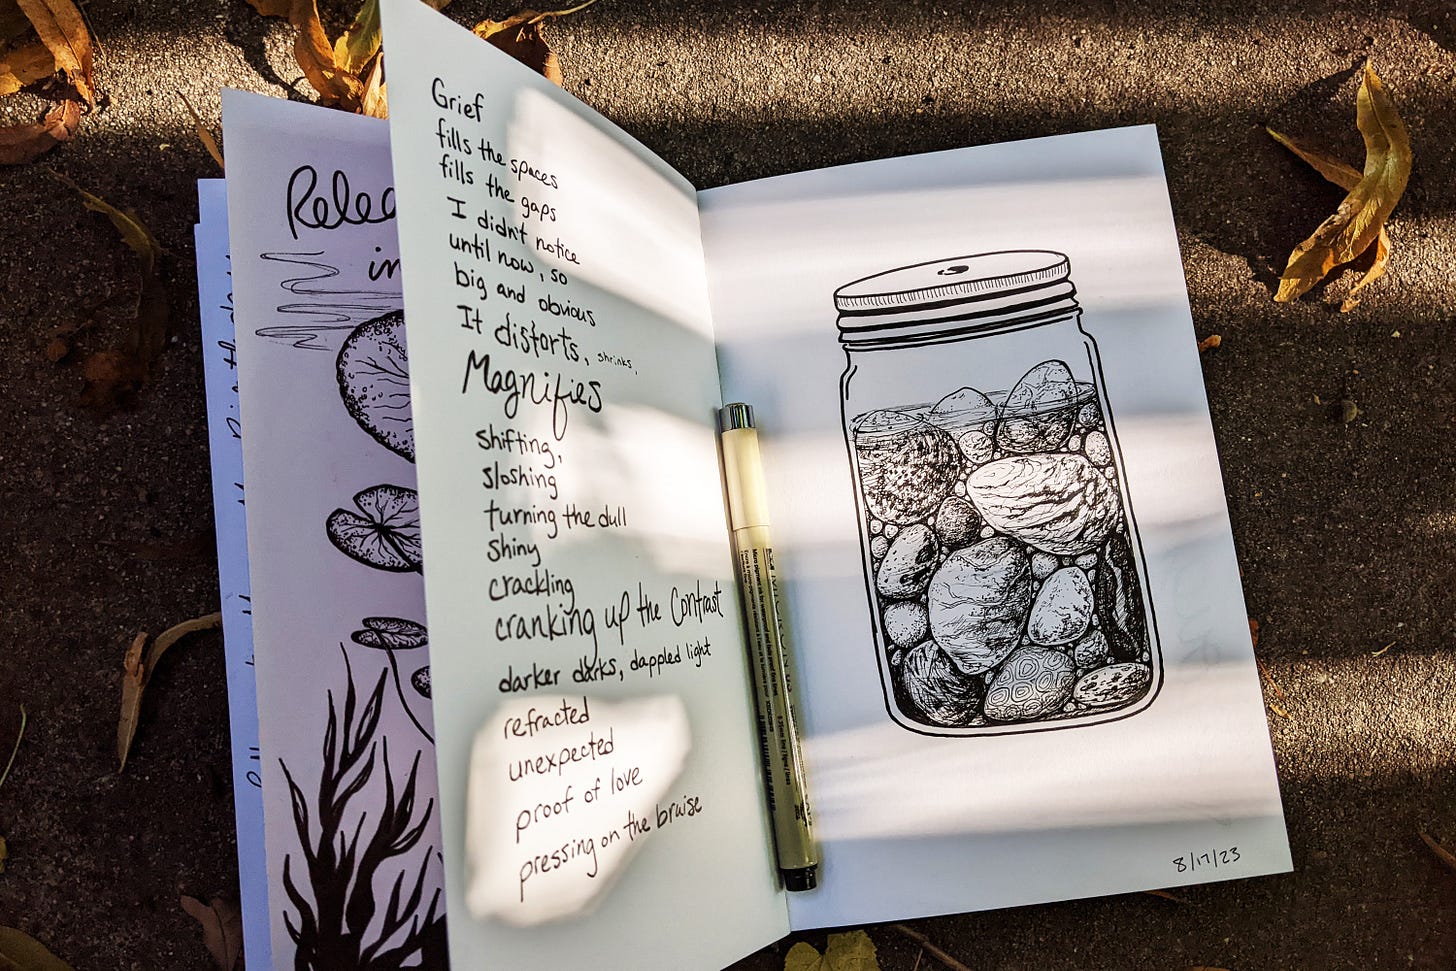 Grief
fills the spaces
fills the gaps
I didn't notice
until now, so
big and obvious
It distorts, shrinks,
Magnifies
shifting,
sloshing
turning the dull
shiny
crackling
cranking up the Contrast
darker darks, dappled light
refracted
unexpected
proof of love
pressing on the bruise
8/17/23
Relea
in